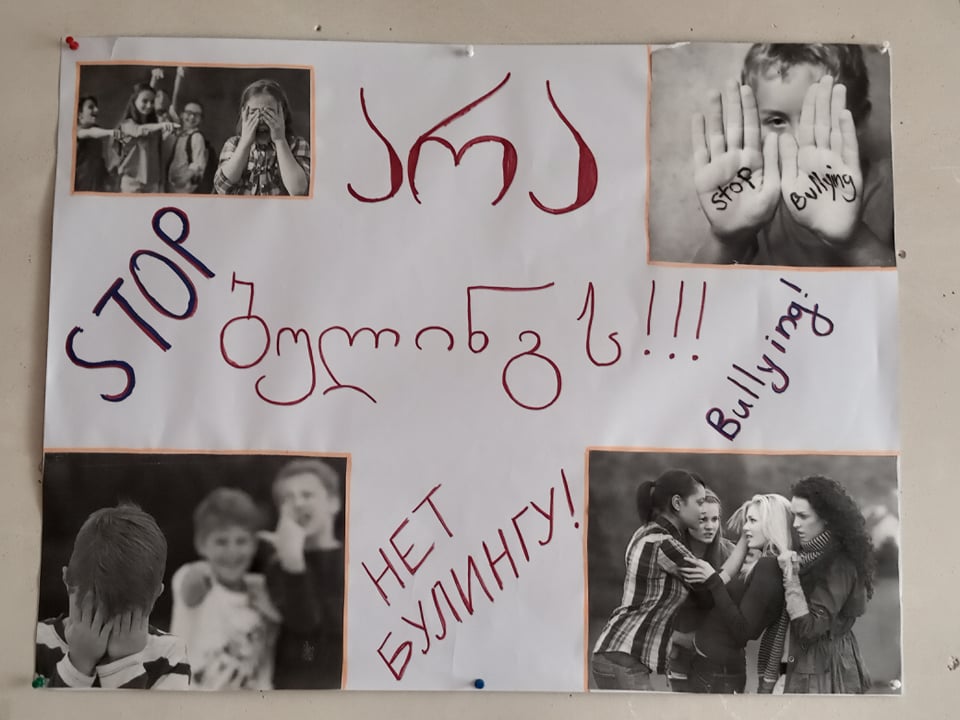 არა
Stop Bullying
STOP
ბულინგს!!!
Bullying!
НЕТ
БУЛИНГУ!